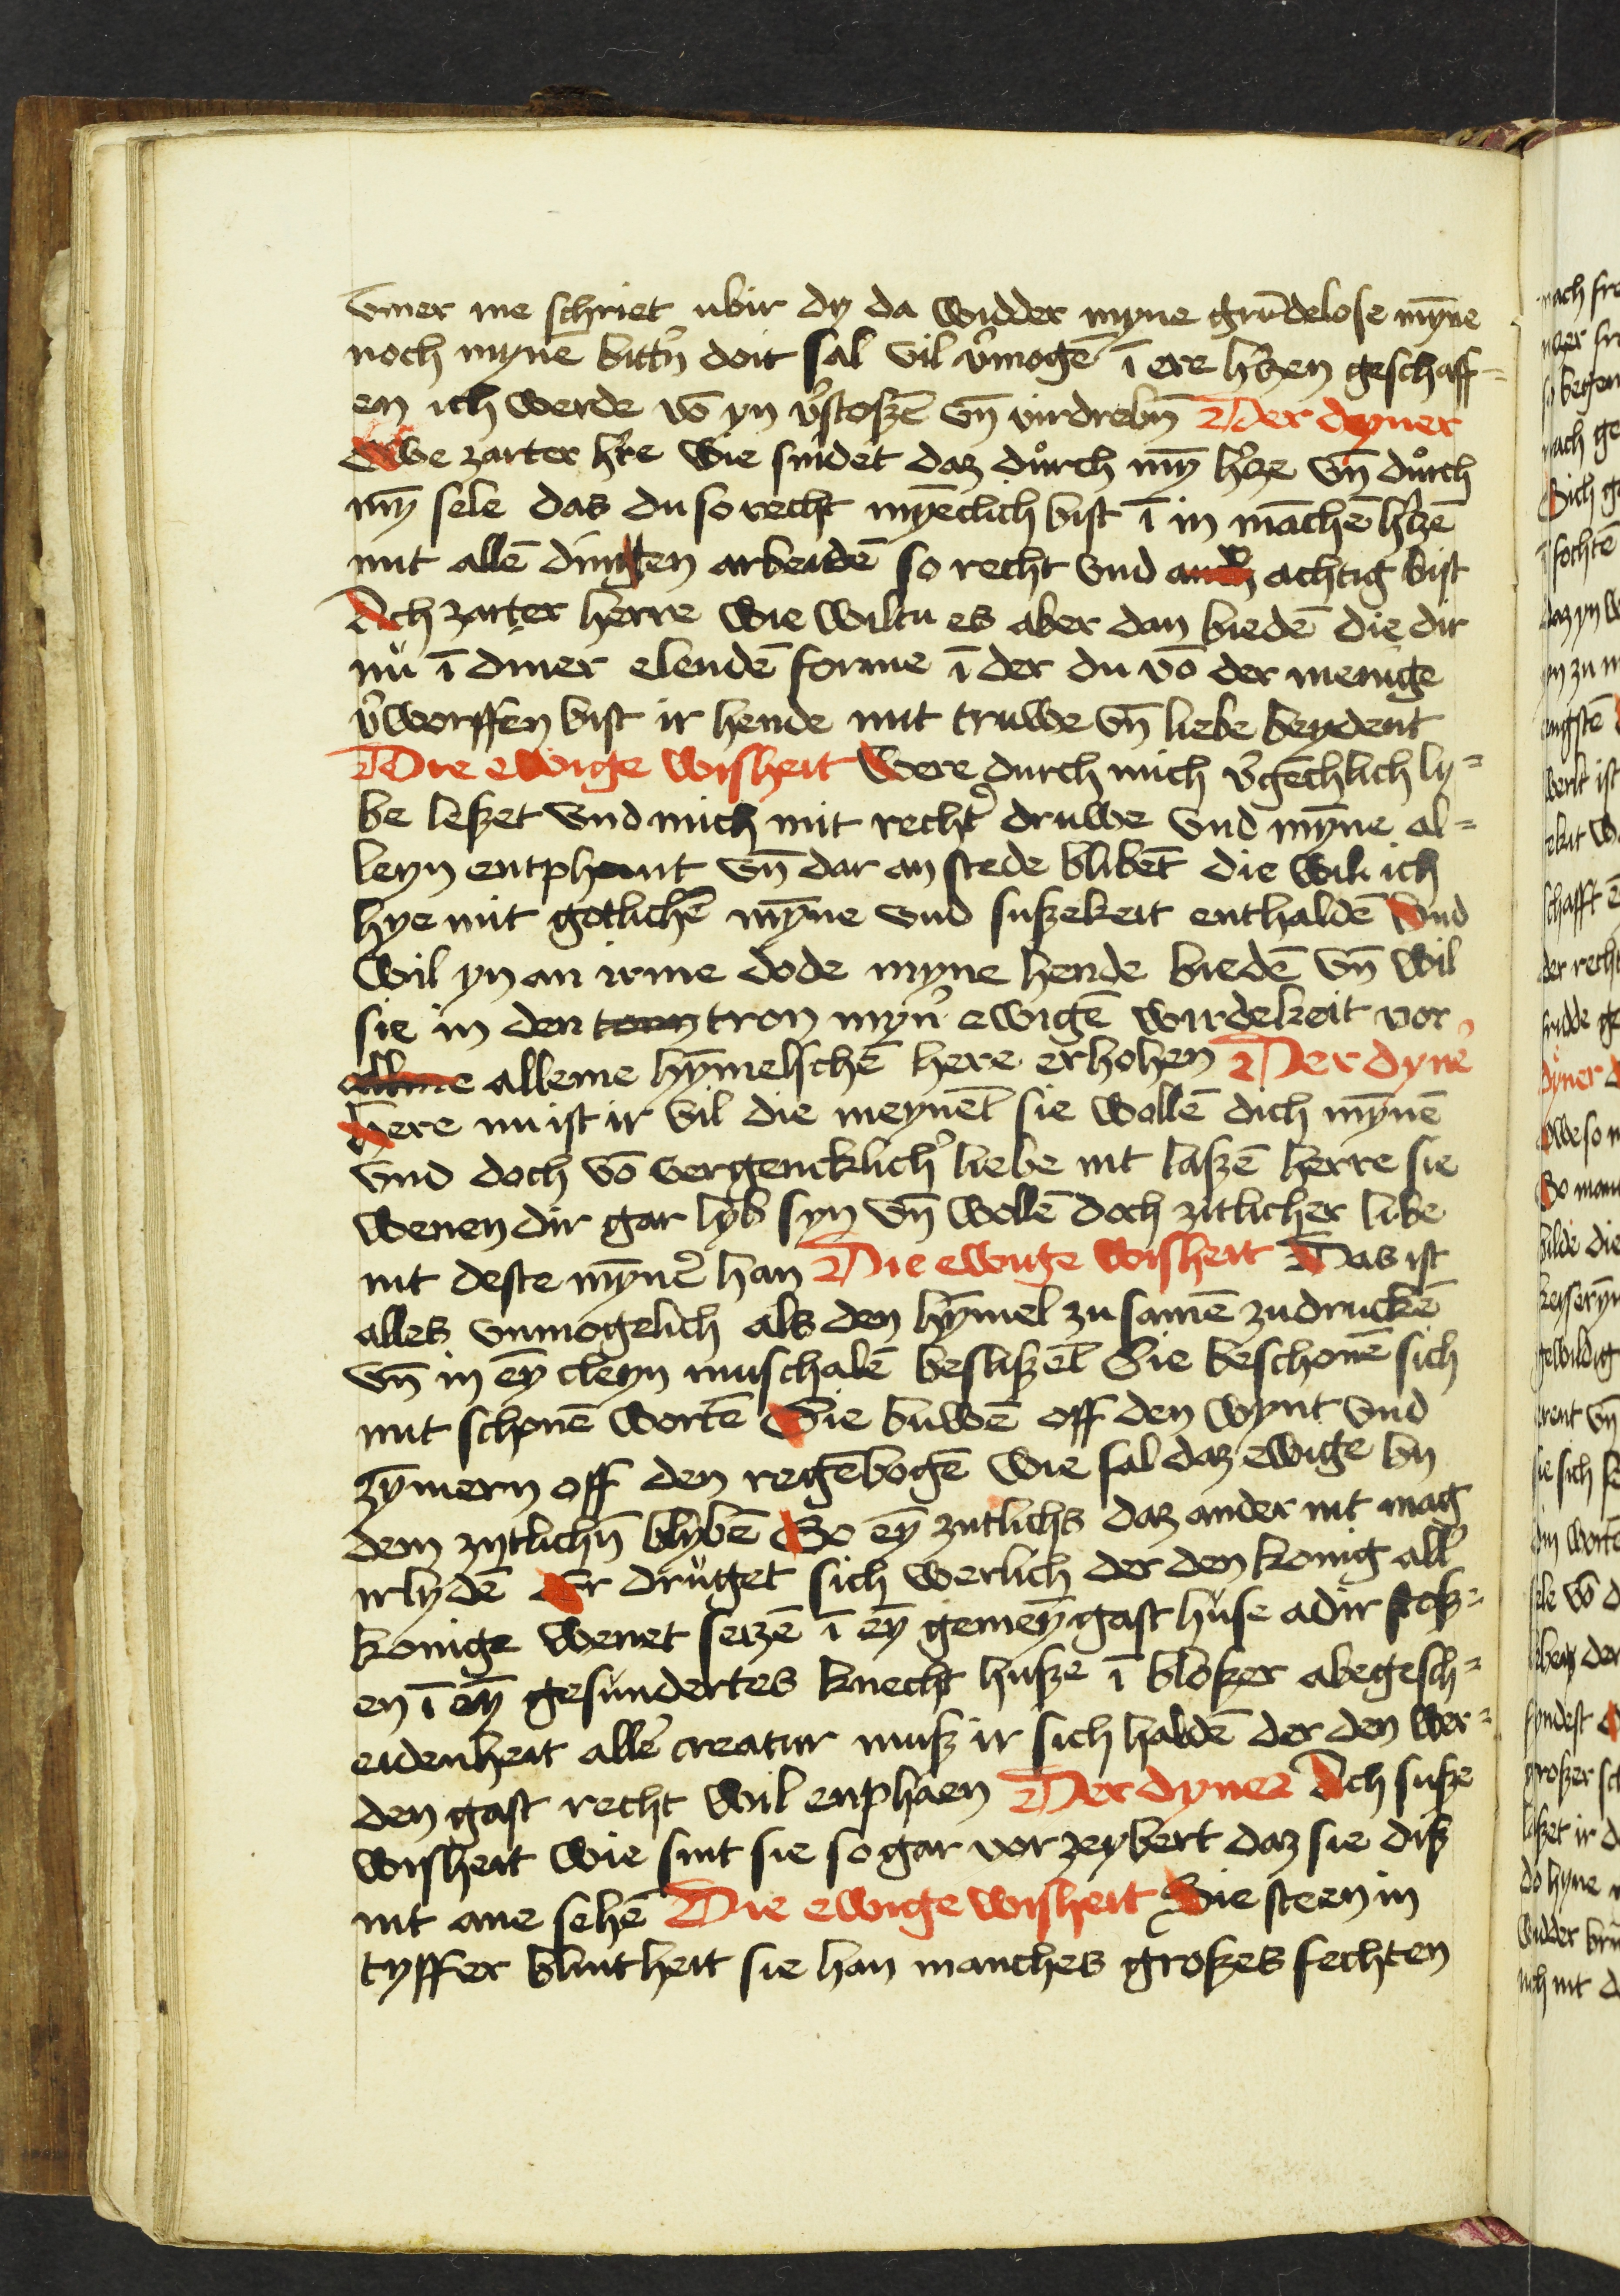 vmer me schriet ubir dy da widder myne grūdelose mȳne
noch mynē bittn̄ doit sal vil v̓mogē ī ere h̓tzen geschaff-
en ich werde vō yn v̓stoßē vn̄ virdrebn̄ Der dyner
Owe zarter h̓re wie snidet daz důrch mȳ h̓tze vn̄ důrch
mȳ sele das du so recht mȳēclich bist ī in māchē h̓tzē
mit allē dingen arbeidē so recht vnd achtig bist
Ach zarter herre wie wiltu es aber dan biedē die dir
nů ī diner elendē forme ī der du vō der menige
v̓worffen bist ir hende mit truwe vn̄ liebe beydent
Die ewige wisheit Were durch mich v̓gēchlich ly-
be leßet vnd mich mit recht̓ druwe vnd mȳne al-
leyn entphamt vn̄ dar an stede blibēt die wil ich
hye mit gotlichē mȳne vnd sußekeit enthaldē Vnd
wil yn an irme dode myne hende biedē vn̄ wil
sie in den tron myn̓ ewigē wirdekeit vor
alleme hȳmelschē here erhohen Der dyn̓e
Here nu ist ir vil die meynēt sie wollē dich mȳnē
vnd doch vō vergencklich̓ liebe nit laßē herre sie
wenen dir gar lyb syn vn̄ wollē doch zitlicher libe
nit deste mȳner̓ han Die ewige wisheit Das ist
alles vnmogelich als den hȳmel zu samē zudruckē
vn̄ in eȳ cleyn muschalē beslißēt Sie beschonē sich
mit schonē wortē Sie buwē off den wynt vnd
zȳmern off den regēbogē wie sal daz ewige by
dem zytlichn̄ blybē So eȳ zitlichs daz ander nit mag
irlydē Er drůget sich werlich der den konig all̓
konige wenet setzē ī eȳ gemeȳ gast hůse adir stoß-
en ī eȳ gesundertes knecht huße ī bloßer abegesch-
eidenheit all̓e creatur muß ir sich haldē der den wer-
den gast recht wil enphaen Der dyner Ach suße
wisheit wie sint sie so gar vor zeybert daz sie diß
nit ane sehē Die ewige wisheit Sie steen in
tyffer blintheit sie han manches großes fechten